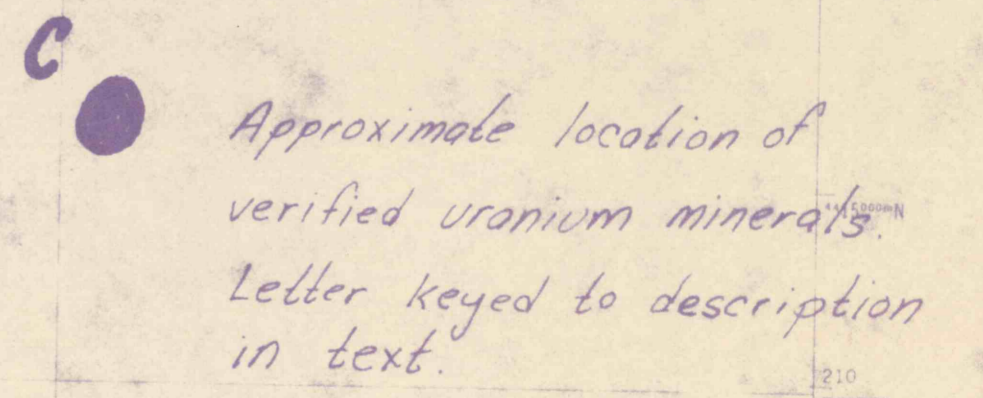 C
Approximate location of
verified uranium minerals.
Letter keyed to description
in text.
210